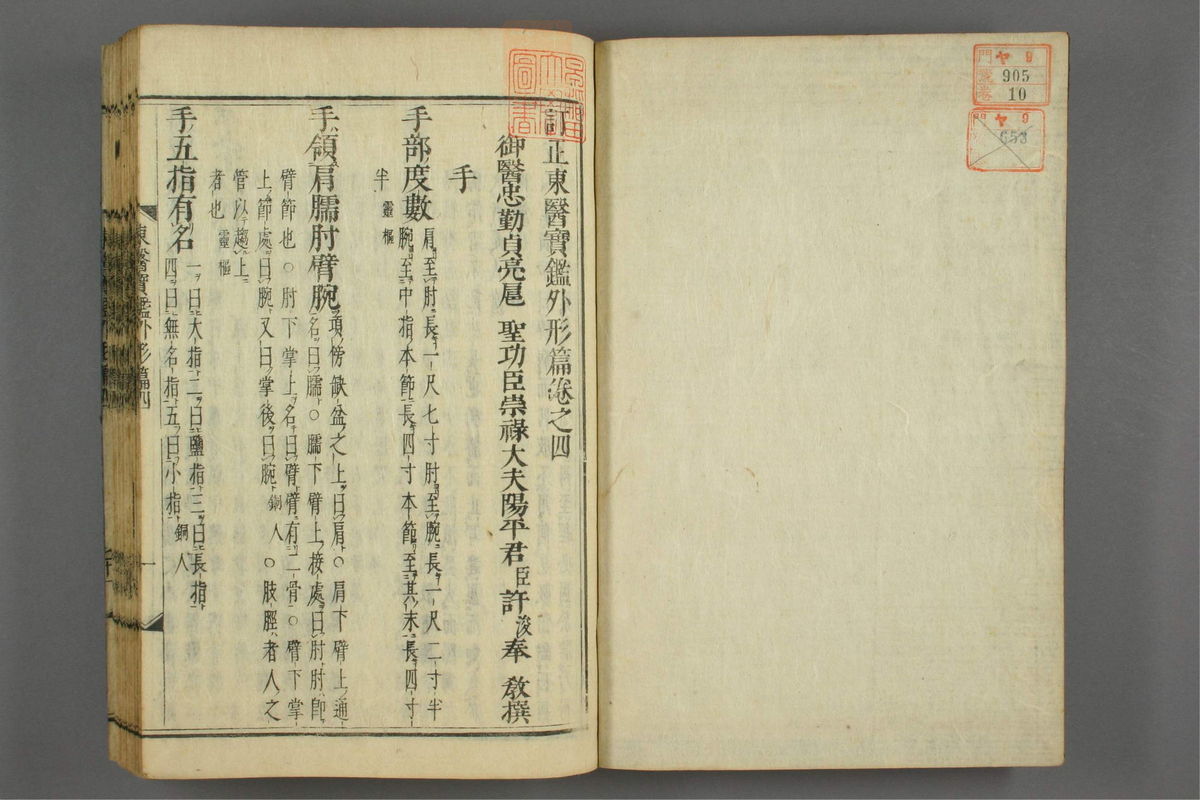 門
ヤ 9
905
10
門
ヤ 9
653
圖書
訂正東醫寶鑑外形篇卷之四
御醫忠勤貞亮扈 聖功臣崇祿大夫陽平君臣許浚奉 敎撰
手
手部度數
肩至肘長一尺七寸肘至腕長一尺二寸半
腕至中指本節長四寸本節至其末長四寸
半靈樞
手領肩臑肘臂腕
項傍缺盆之上曰肩○肩下臂上通
名曰臑○臑下臂上接處曰肘肘卽
臂節也○肘下掌上名曰臂臂有二骨○臂下掌
上節處曰腕又曰掌後曰腕銅人○肢脛者人之
管以趨上
者也靈樞
手五指有名
一曰大指二曰鹽指三曰長指
四曰無名指五曰小指銅人
東醫寶鑑外形篇四
一